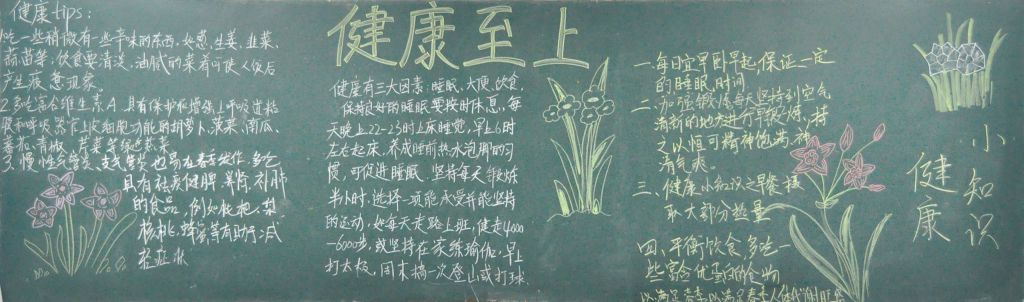 健康tips:
吃一些稍微有一些辛味的东西,如葱、生姜、韭菜、
蒜苗等,饮食要清淡,油腻的菜肴可使人饭后
产生疲惫现象
2.多吃富含维生素A,具有保护和增强上呼吸道粘
膜和呼吸器官上皮细胞功能的胡萝卜、菠菜、南瓜、
3.慢性气管炎、支气管炎也易在春季发作,多吃
具有祛痰健脾、养肾、补肺
的食品,例如枇杷、梨、
核桃、蜂蜜等有助于减
健康至上
健康有三大因素:睡眠、大便、饮食,
保持良好的睡眠要按时休息,每
天晚上22-23时上床睡觉,早上6时
左右起床,养成睡前热水泡脚的习
惯,可促进睡眠、坚持每天锻炼
半小时,选择一项能承受并能坚持
的运动,如每天走路上班,健走4000
-6000步,或坚持在家练瑜伽,早上
打太极,周末搞一次登山或打球.
一、每日宜早卧早起,保证一定
的睡眠时间
二、加强锻炼每天坚持到空气
清新的地方进行早锻炼,持
之以恒可精神饱满神
清气爽。
三、健康小知识之早餐摄
取大部分热量
四、平衡饮食,多吃一
些富含优蛋白的食物
小知识
健康